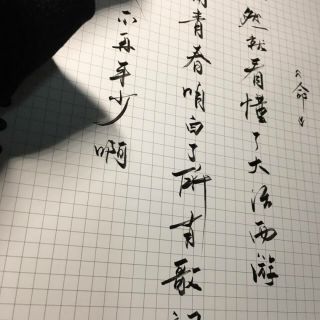 命
然就看懂了大话西游
青春明白了所有歌
不再年少啊